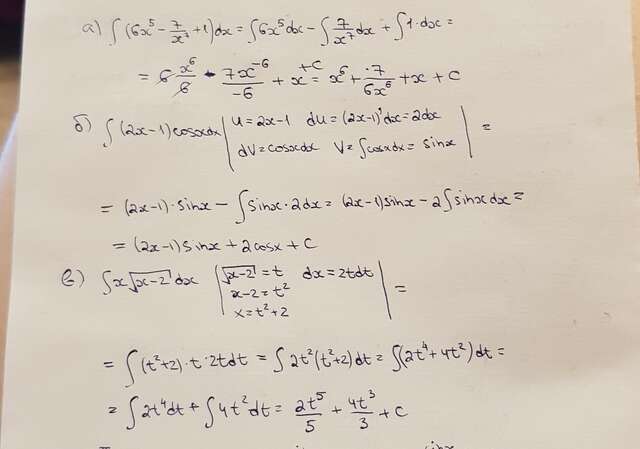 а) ∫(6x⁵ − 7/x⁷ + 1)dx = ∫6x⁵dx − ∫7/x⁷ dx + ∫1·dx =
= 6 x⁶/6 − 7x⁻⁶/−6 + x + C = x⁶ + 7/6x⁶ + x + C
б) ∫(2x−1)cosxdx | u = 2x−1 du = (2x−1)'dx = 2dx
dV = cosxdx V = ∫cosxdx = sinx | =
= (2x−1)·sinx − ∫sinx·2dx = (2x−1)sinx − 2∫sinxdx =
= (2x−1)sinx + 2cosx + C
в) ∫x√(x−2) dx | √(x−2) = t dx = 2tdt
x−2 = t²
x = t²+2 | =
= ∫(t²+2)·t·2tdt = ∫2t²(t²+2)dt = ∫(2t⁴+4t²)dt =
= ∫2t⁴dt + ∫4t²dt = 2t⁵/5 + 4t³/3 + C